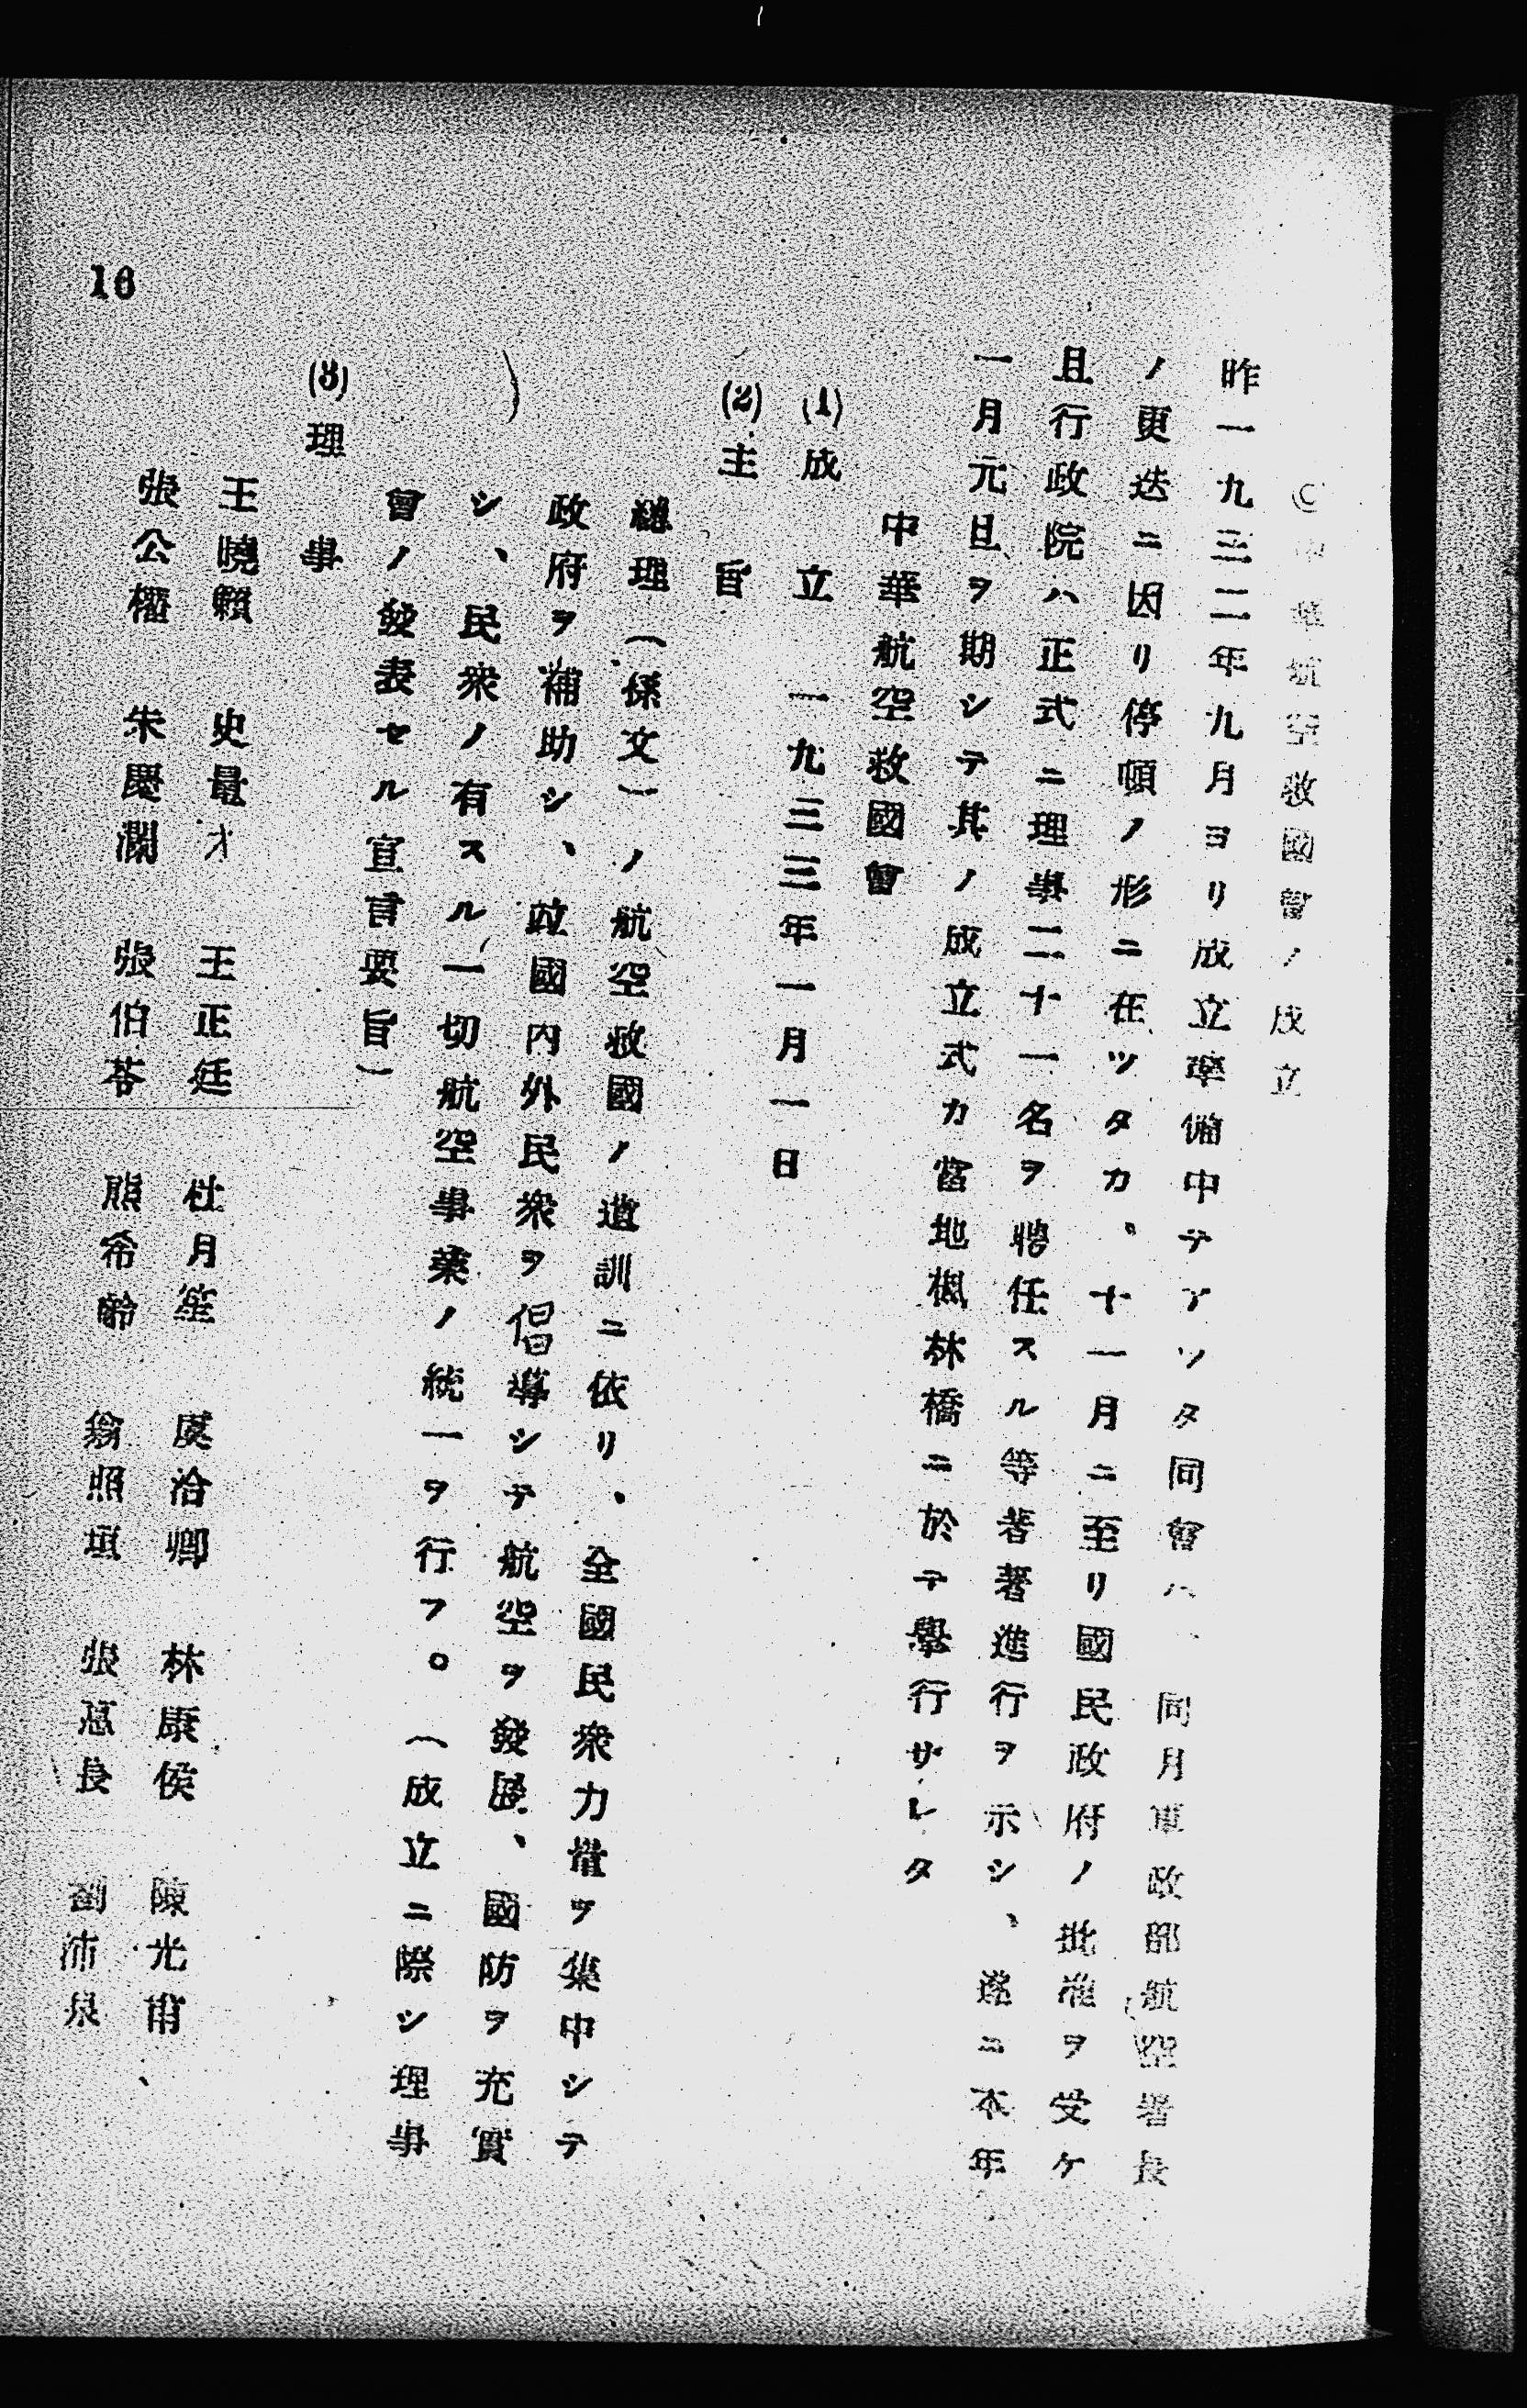 ○中華航空救國會ノ成立
昨一九三二年九月ヨリ成立準備中テアツタ同會ハ、同月軍政部航空署長
ノ更迭ニ因リ停頓ノ形ニ在ツタカ、十一月ニ至リ國民政府ノ批准ヲ受ケ
且行政院ハ正式ニ理事二十一名ヲ聘任スル等著著進行ヲ示シ、遂ニ本年
一月元旦ヲ期シテ其ノ成立式カ當地楓林橋ニ於テ擧行サレタ
中華航空救國會
(1)成立 一九三三年一月一日
(2)主旨
總理(孫文)ノ航空救國ノ遺訓ニ依リ、全國民衆力量ヲ集中シテ
政府ヲ補助シ、竝國内外民衆ヲ倡導シテ航空ヲ發展、國防ヲ充實
シ、民衆ノ有スル一切航空事業ノ統一ヲ行フ。(成立ニ際シ理事
會ノ發表セル宣言要旨)
(3)理事
王曉籟 史量才 王正廷 杜月笙 虞洽卿 林康侯 陳光甫、
張公權 朱慶瀾 張伯苓 熊希齡 翁照垣 張惠長 劉沛泉
16